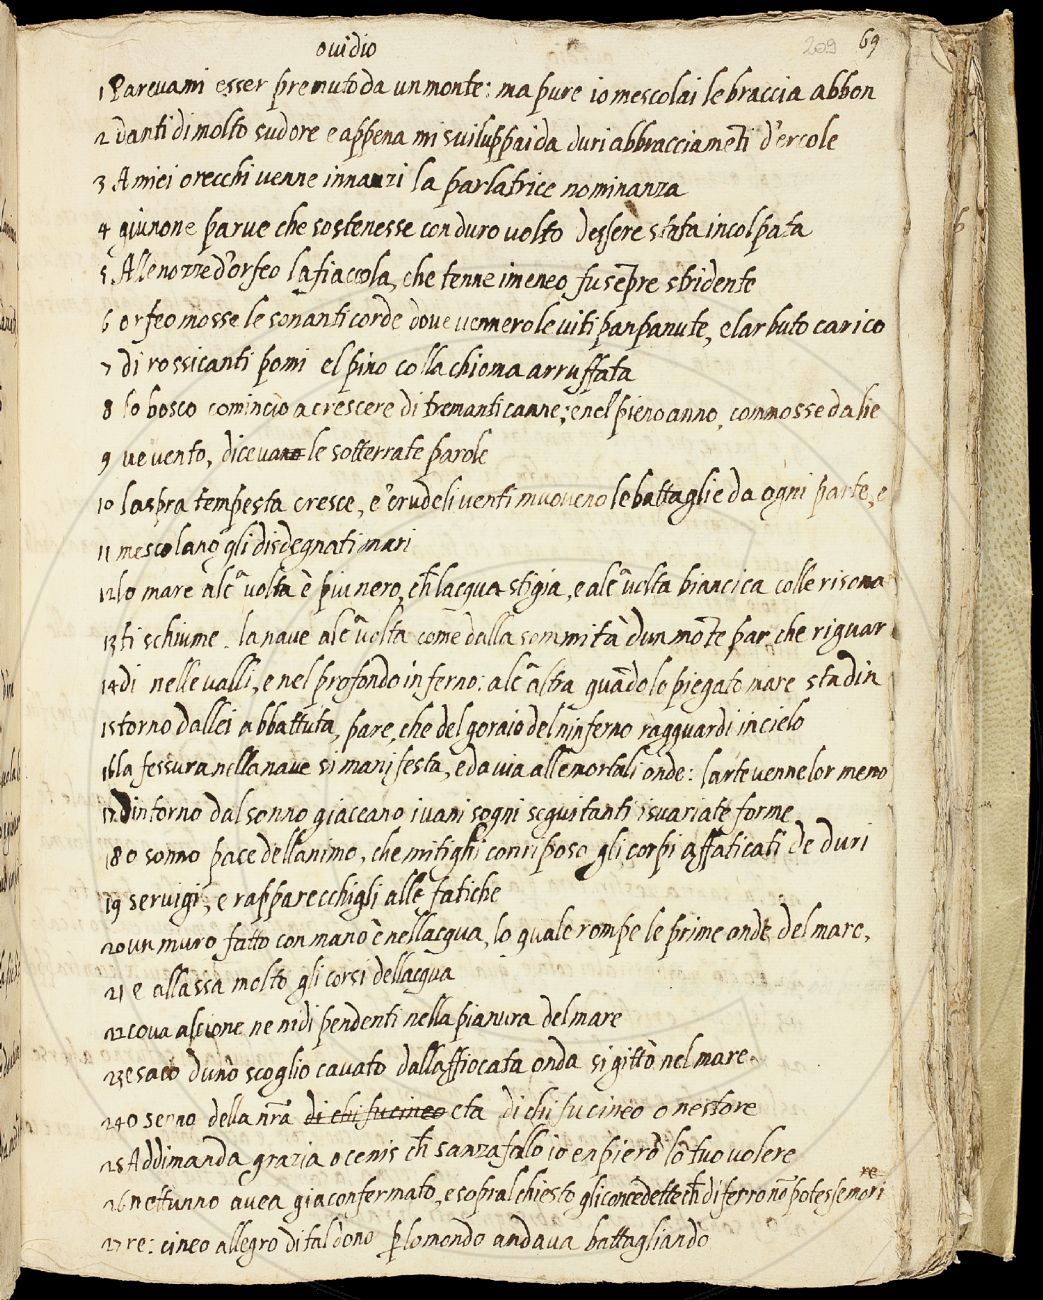 ovidio 209 69
1 Parevami esser premuto da un monte: ma pure io mescolai le braccia abbon
2 danti di molto sudore e appena mi sviluppai da duri abbracciamēti d'ercole
3 A miei orecchi venne innanzi la parlatrice nominanza
4 giunone parve che sostenesse con duro volto dessere stata incolpata
5 Alle nozze d'orfeo la fiaccola, che tenne imeneo fu sēpre stridente
6 orfeo mosse le sonanti corde dove vennero le viti panpanute, e larbuto carico
7 di rossicanti pomi el pino colla chioma arruffata
8 lo bosco comincio a crescere di tremanti canne; e nel pieno anno, conmosse da lie
9 ve vento, dicevano le sotterrate parole
10 laspra tempesta cresce, e crudeli venti muoveno le battaglie da ogni parte, e
11 mescolano gli disdegnati mari
12 lo mare alc̄ volta è piu nero, ch̄ lacqua stigia, e alc̄ volta biancica colle risona
13 ti schiume. la nave alc̄ volta come dalla sommità dun mōte par che riguar
14 di nelle valli, e nel profondo inferno: alc̄ altra quādo lo piegato mare sta din
15 torno dallei abbattuta, pare, che del goraio del ninferno ragguardi in cielo
16 la fessura nella nave si manifesta, e da via alle mortali onde: larte venne lor meno
17 Dintorno dal sonno giaceano i vani sogni seguitanti isvariate forme
18 o sonno pace dellanimo, che mitighi con riposo gli corpi affaticati de duri
19 servigi, e rapparecchigli alle fatiche
20 un muro fatto con mano è nellacqua, lo quale rompe le prime onde del mare,
21 e allassa molto gli corsi dellacqua
22 cova alcione ne nidi pendenti nella pianura del mare
23 esaco duno scoglio cavato dallaffiocata onda si gittò nel mare.
24 o senno della nr̄a di chi fu cineo eta di chi fu cineo o nestore
25 Addimanda grazia o cenis ch̄ sanza fallo io enpierò lo tuo volere
26 nettunno avea gia confermato, e sopral chiesto gli concedette ch̄ di ferro nō potesse mori re
27 re: cineo allegro di tal dono p lo mondo andava battagliando